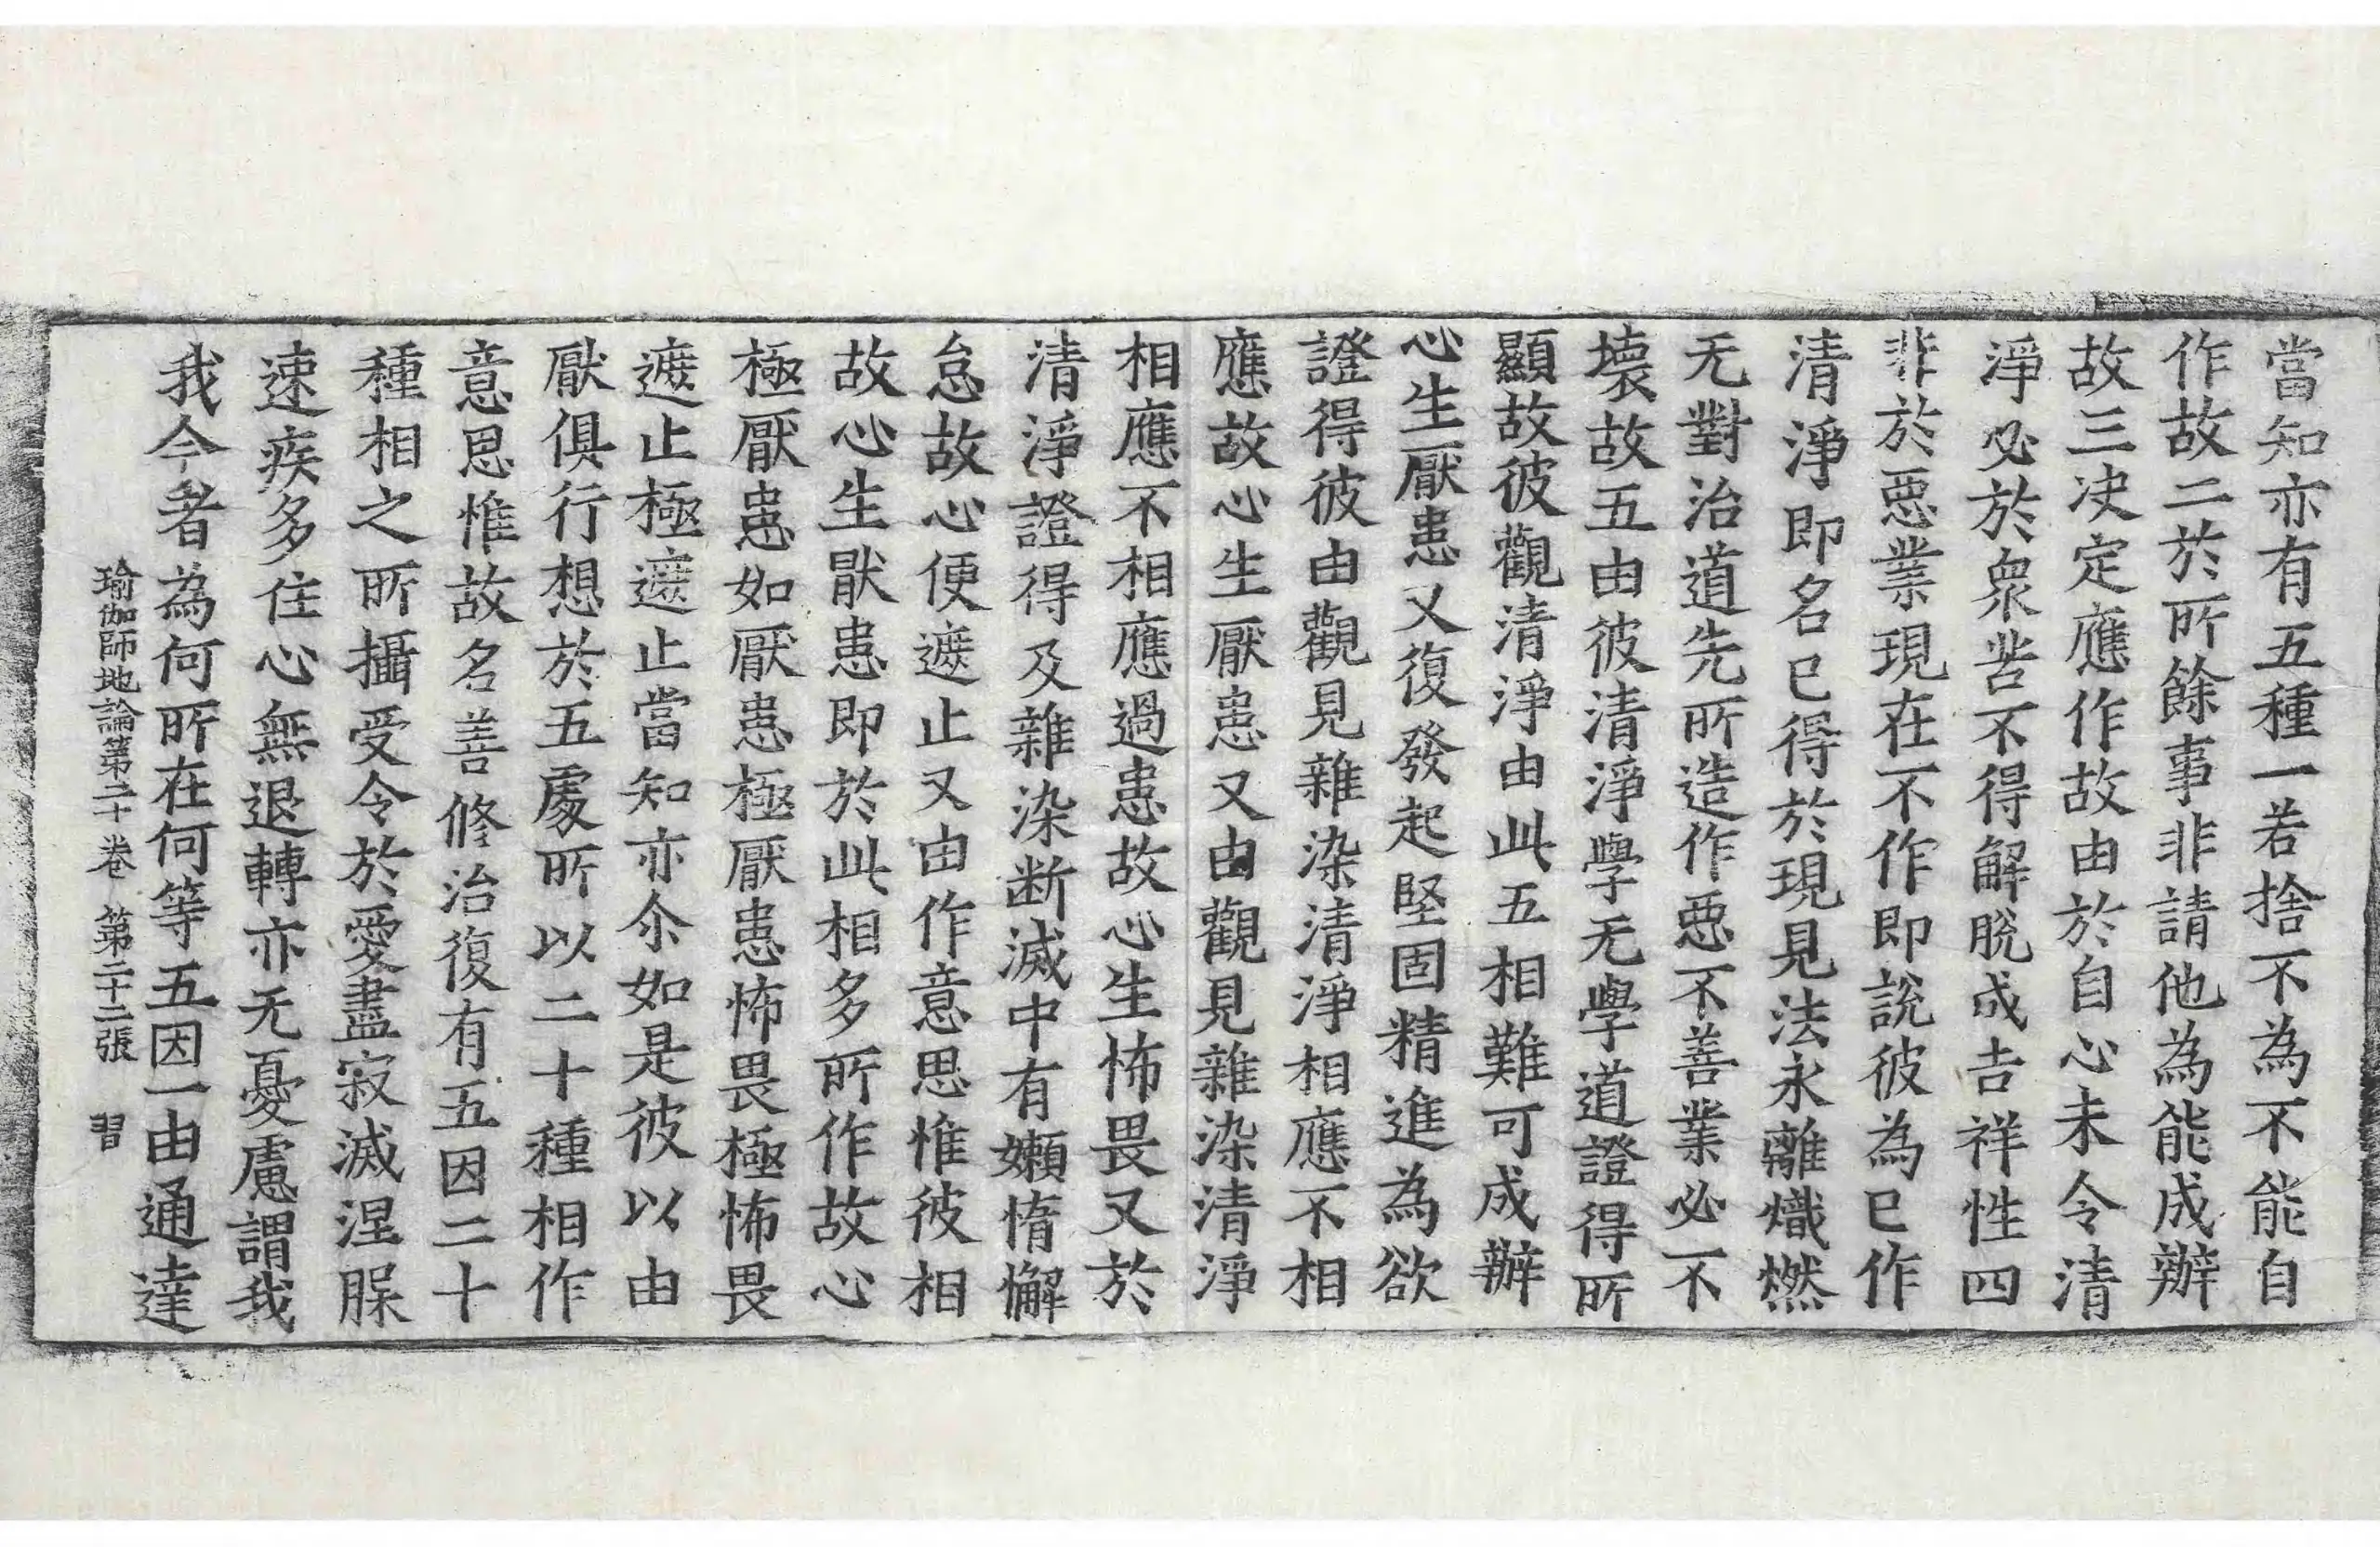 當知亦有五種一若捨不為不能自
作故二於所餘事非請他為能成辦
故三决定應作故由於自心未令清
淨必於衆苦不得解脫成吉祥性四
非於惡業現在不作即說彼為已作
清淨即名已得於現見法永離熾燃
无對治道先所造作惡不善業必不
壞故五由彼清淨學无學道證得所
顯故彼觀清淨由此五相難可成辦
心生厭患又復發起堅固精進為欲
證得彼由觀見雜染清淨相應不相
應故心生厭患又由觀見雜染清淨
相應不相應過患故心生怖畏又於
清淨證得及雜染断滅中有嬾惰懈
怠故心便遮止又由作意思惟彼相
故心生猒患即於此相多所作故心
極厭患如厭患極厭患怖畏極怖畏
遮止極遮止當知亦尒如是彼以由
厭俱行想於五處所以二十種相作
意思惟故名善修治復有五因二十
種相之所攝受令於愛盡寂滅涅槃
速疾多住心無退轉亦无憂慮謂我
我今者為何所在何等五因一由通達
瑜伽師地論第二十卷 第二十二張 習